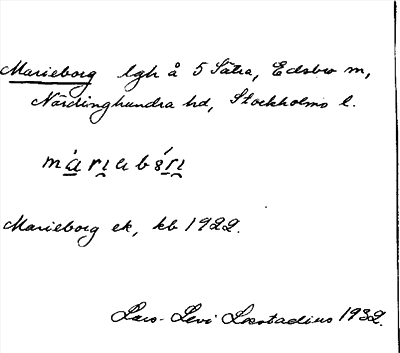 Marieborg lgh å 5 Sätra, Edsbro sn,
Närdinghundra hd, Stockholms l.
Marieborg ek, kb 1922.
Lars-Levi Læstadius 1932.